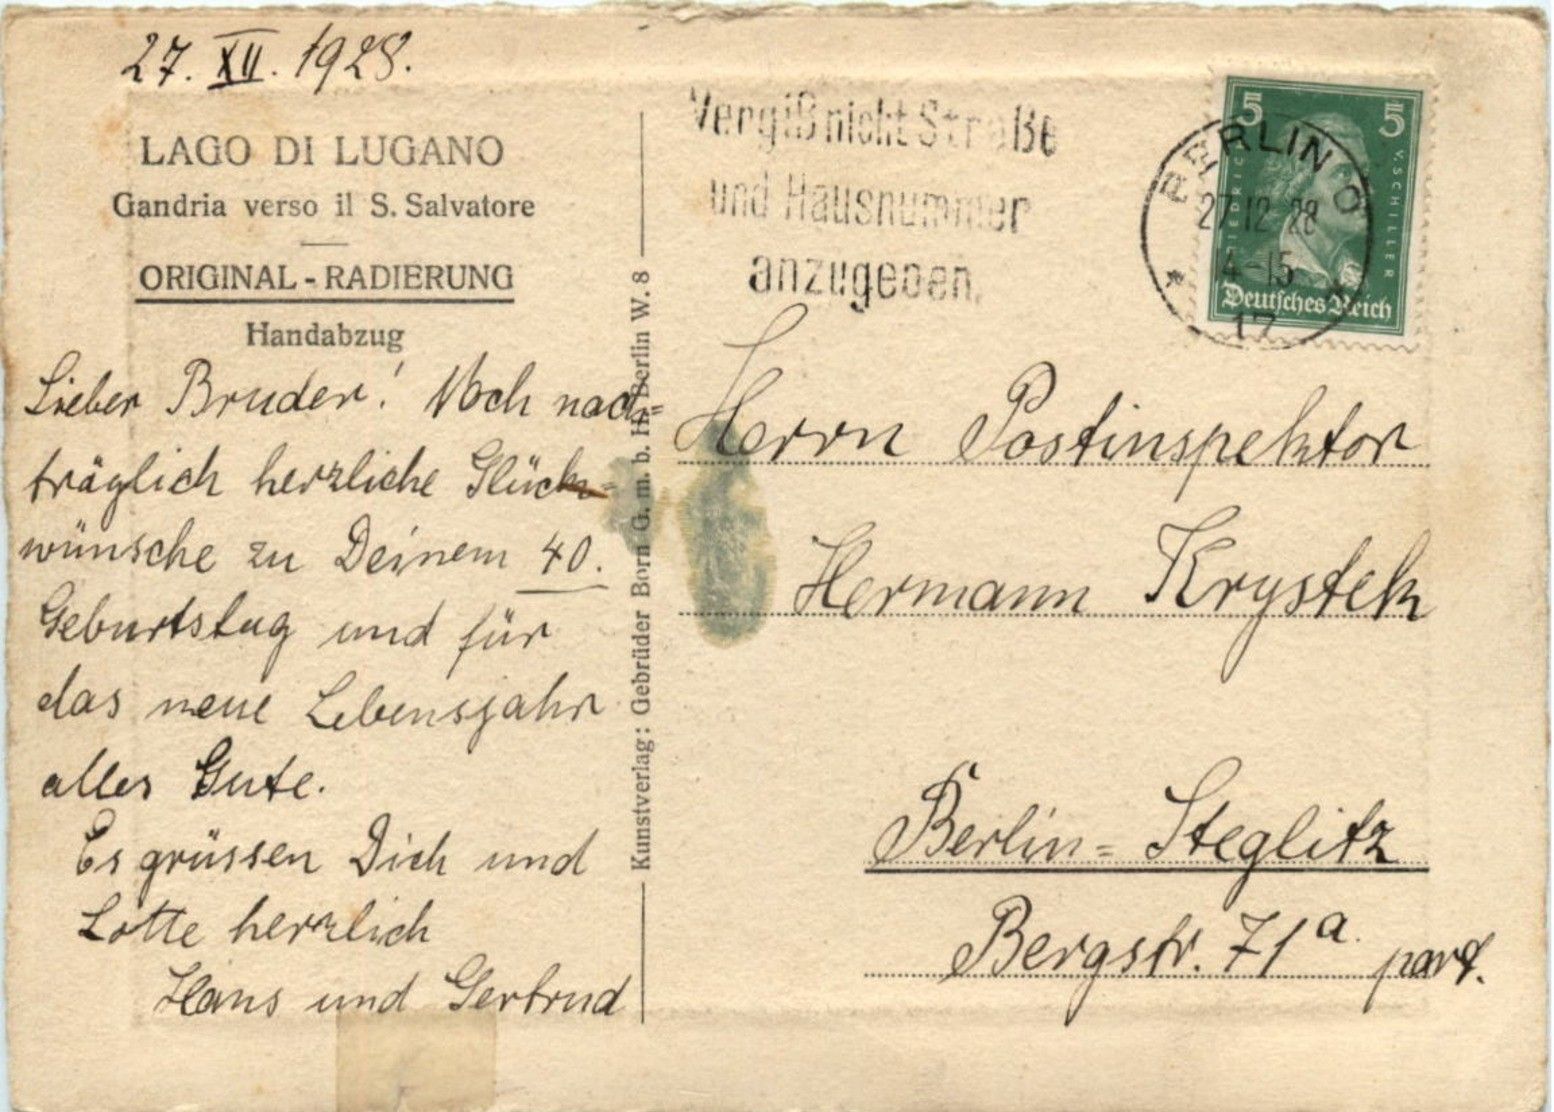 27. XII. 1928.
LAGO DI LUGANO
Gandria verso il S. Salvatore
ORIGINAL - RADIERUNG
Handabzug
Lieber Bruder! Noch nach-
träglich herzliche Glück-
wünsche zu Deinem 40.
Geburtstag und für
das neue Lebensjahr
alles Gute.
Es grüssen Dich und
Lotte herzlich
Hans und Gertrud
Kunstverlag: Gebrüder Born G. m. b. H. Berlin W. 8
Vergiß nicht Straße
und Hausnummer
anzugeben.
BERLIN O
27 12 28
4-15
17
5 5
FRIEDRICH V. SCHILLER
Deutsches Reich
Herrn Postinspektor
Hermann Krystek
Berlin-Steglitz
Bergstr. 71a part.